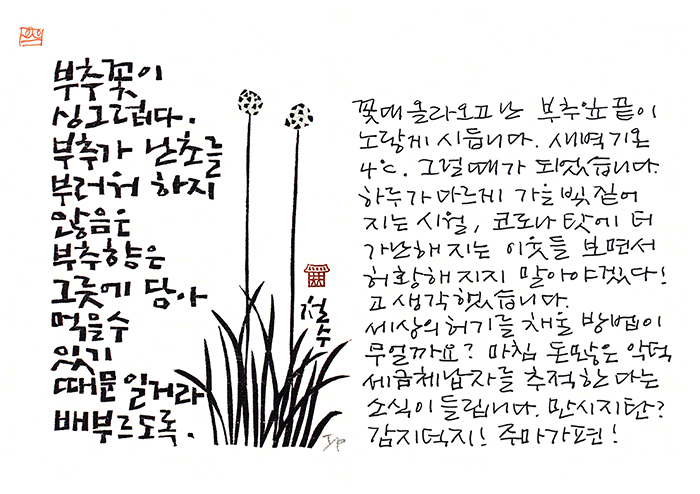 부추꽃이
싱그럽다.
부추가 난초를
부러워 하지
않음은
부추향은
그릇에 담아
먹을수
있기
때문일거라
배부르도록.
철수
꽃대 올라오고 난 부추잎 끝이
노랗게 시듭니다. 새벽기온
4℃. 그럴때가 되었습니다.
하루가 다르게 가을빛 짙어
지는 시월, 코로나 탓에 더
가난해 지는 이웃들 보면서
허황해 지지 말아야겠다!
고 생각했습니다.
세상의 허기를 채울 방법이
무얼까요? 마침 돈많은 악덕
세금체납자를 추적한다는
소식이 들립니다. 만시지탄?
감지덕지! 주마가편!